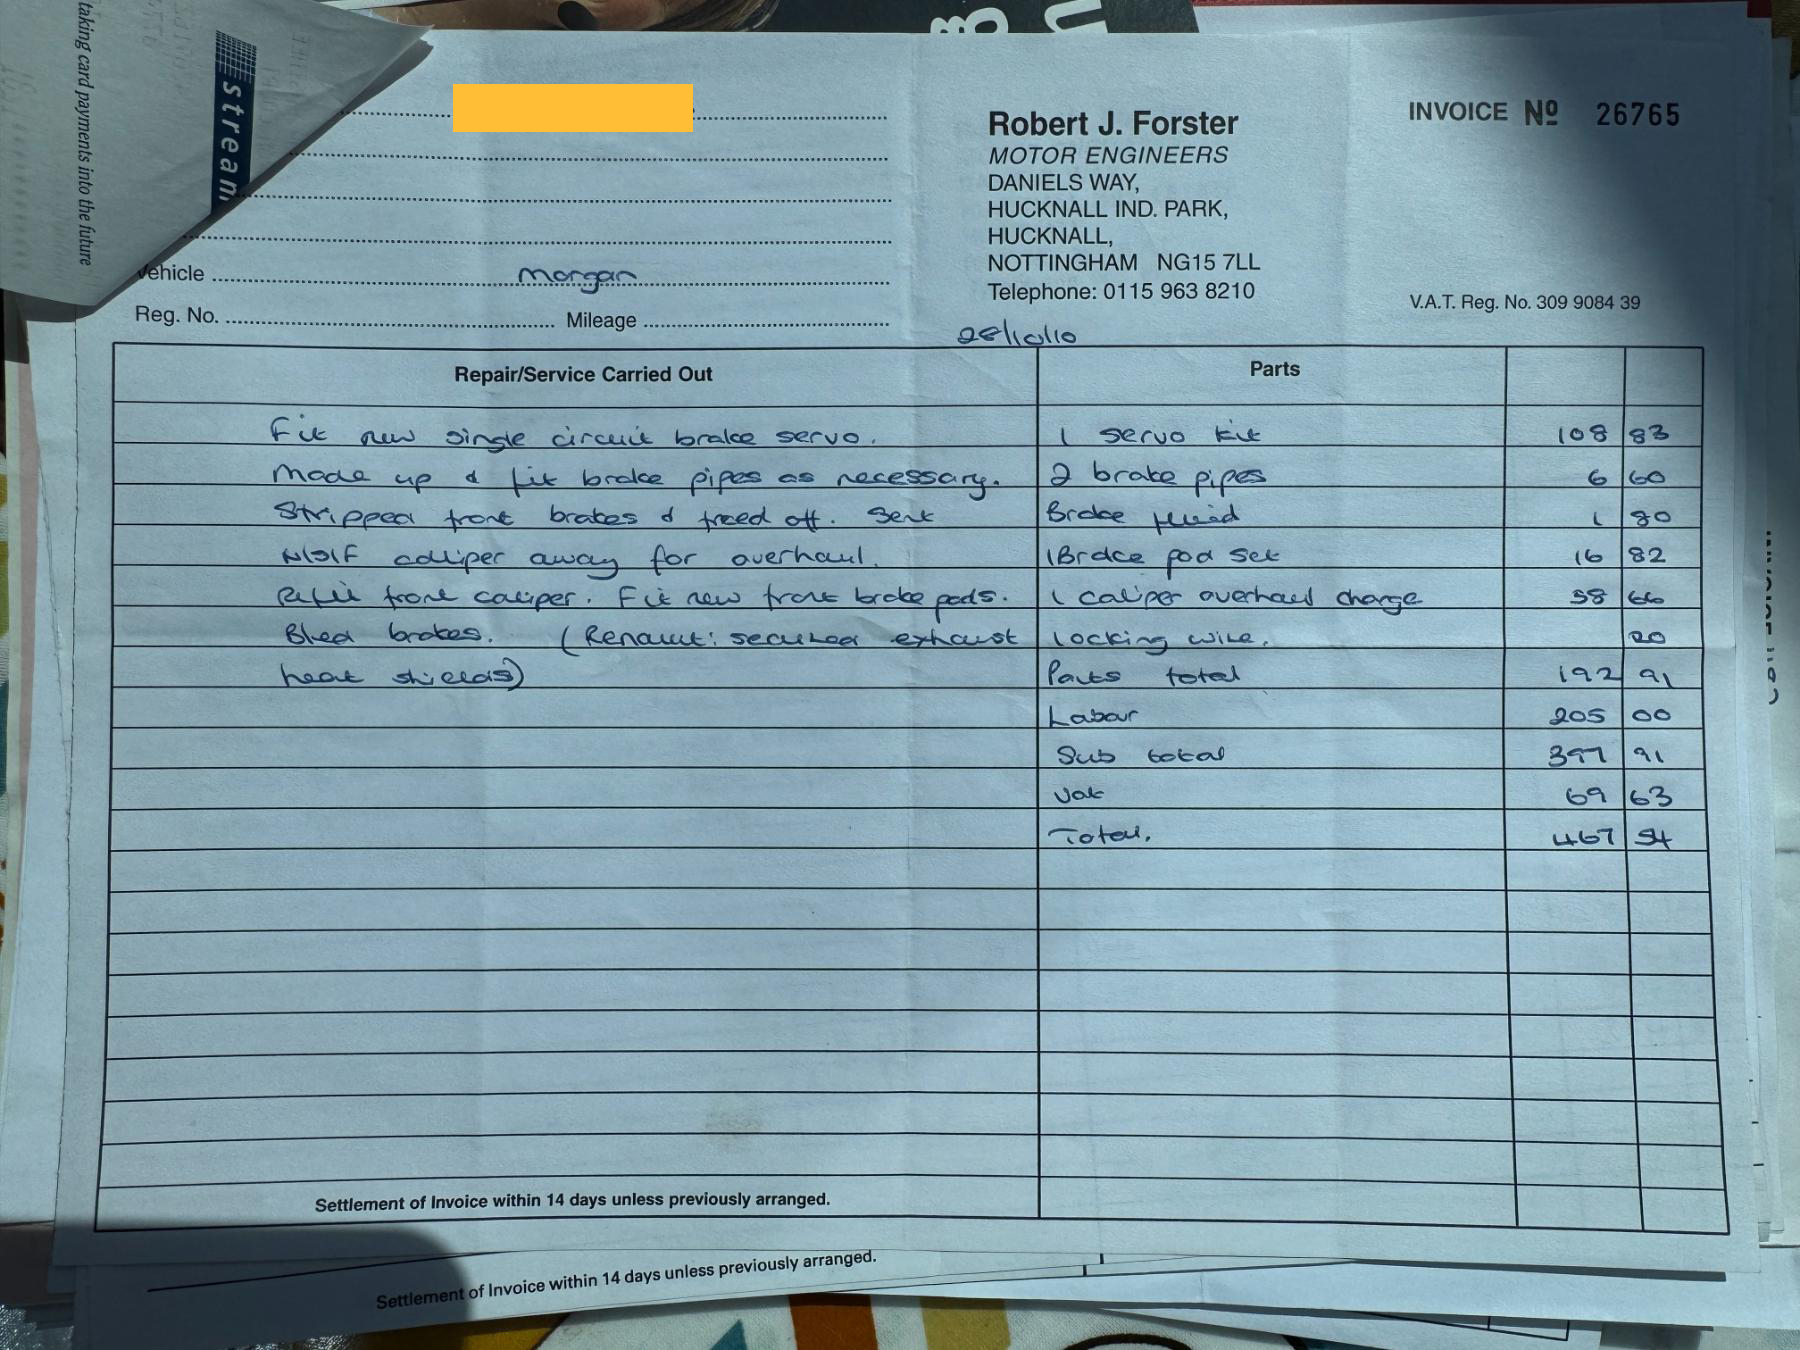 taking card payments into the future
stream
Robert J. Forster
MOTOR ENGINEERS
DANIELS WAY,
HUCKNALL IND. PARK,
HUCKNALL,
NOTTINGHAM NG15 7LL
Telephone: 0115 963 8210
INVOICE Nº 26765
V.A.T. Reg. No. 309 9084 39
Vehicle Morgan
Reg. No. Mileage
28/10/10
Repair/Service Carried Out Parts
Fit new single circuit brake servo. 1 servo kit 108 83
Made up & fit brake pipes as necessary. 2 brake pipes 6 60
Stripped front brakes & freed off. Sent Brake fluid 1 80
N/S/F calliper away for overhaul. 1 Brake pad set 16 82
Refit front caliper. Fit new front brake pads. 1 caliper overhaul charge 58 66
Bled brakes. (Renault: secured exhaust locking wire. 20
heat shields) Parts total 192 91
Labour 205 00
Sub total 397 91
Vat 69 63
Total. 467 54
Settlement of Invoice within 14 days unless previously arranged.
Settlement of Invoice within 14 days unless previously arranged.